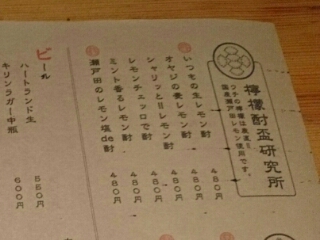 檸檬酎盃研究所
ウチの檸檬は農薬
温泉瀬戸田レモン使用です。
いつもの生レモン酎 480円
オヤジの素レモン酎 480円
シャリッと!!レモン酎 480円
レモンチェッロで酎 480円
ミント香るレモン酎 480円
瀬戸田のレモン塩de酎 480円
ビール
ハートランド生 550円
キリンラガー中瓶 600円